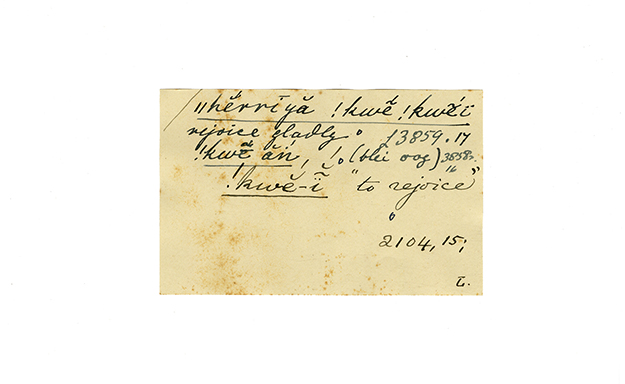 ǁhĕrrīyă !kwĕ !kwĕī
rejoice gladly. 3859.17
!kwĕ ăń, !. (blii oog) 3858.
!kwĕ-ĭ "to rejoice"
2104, 15;
L.